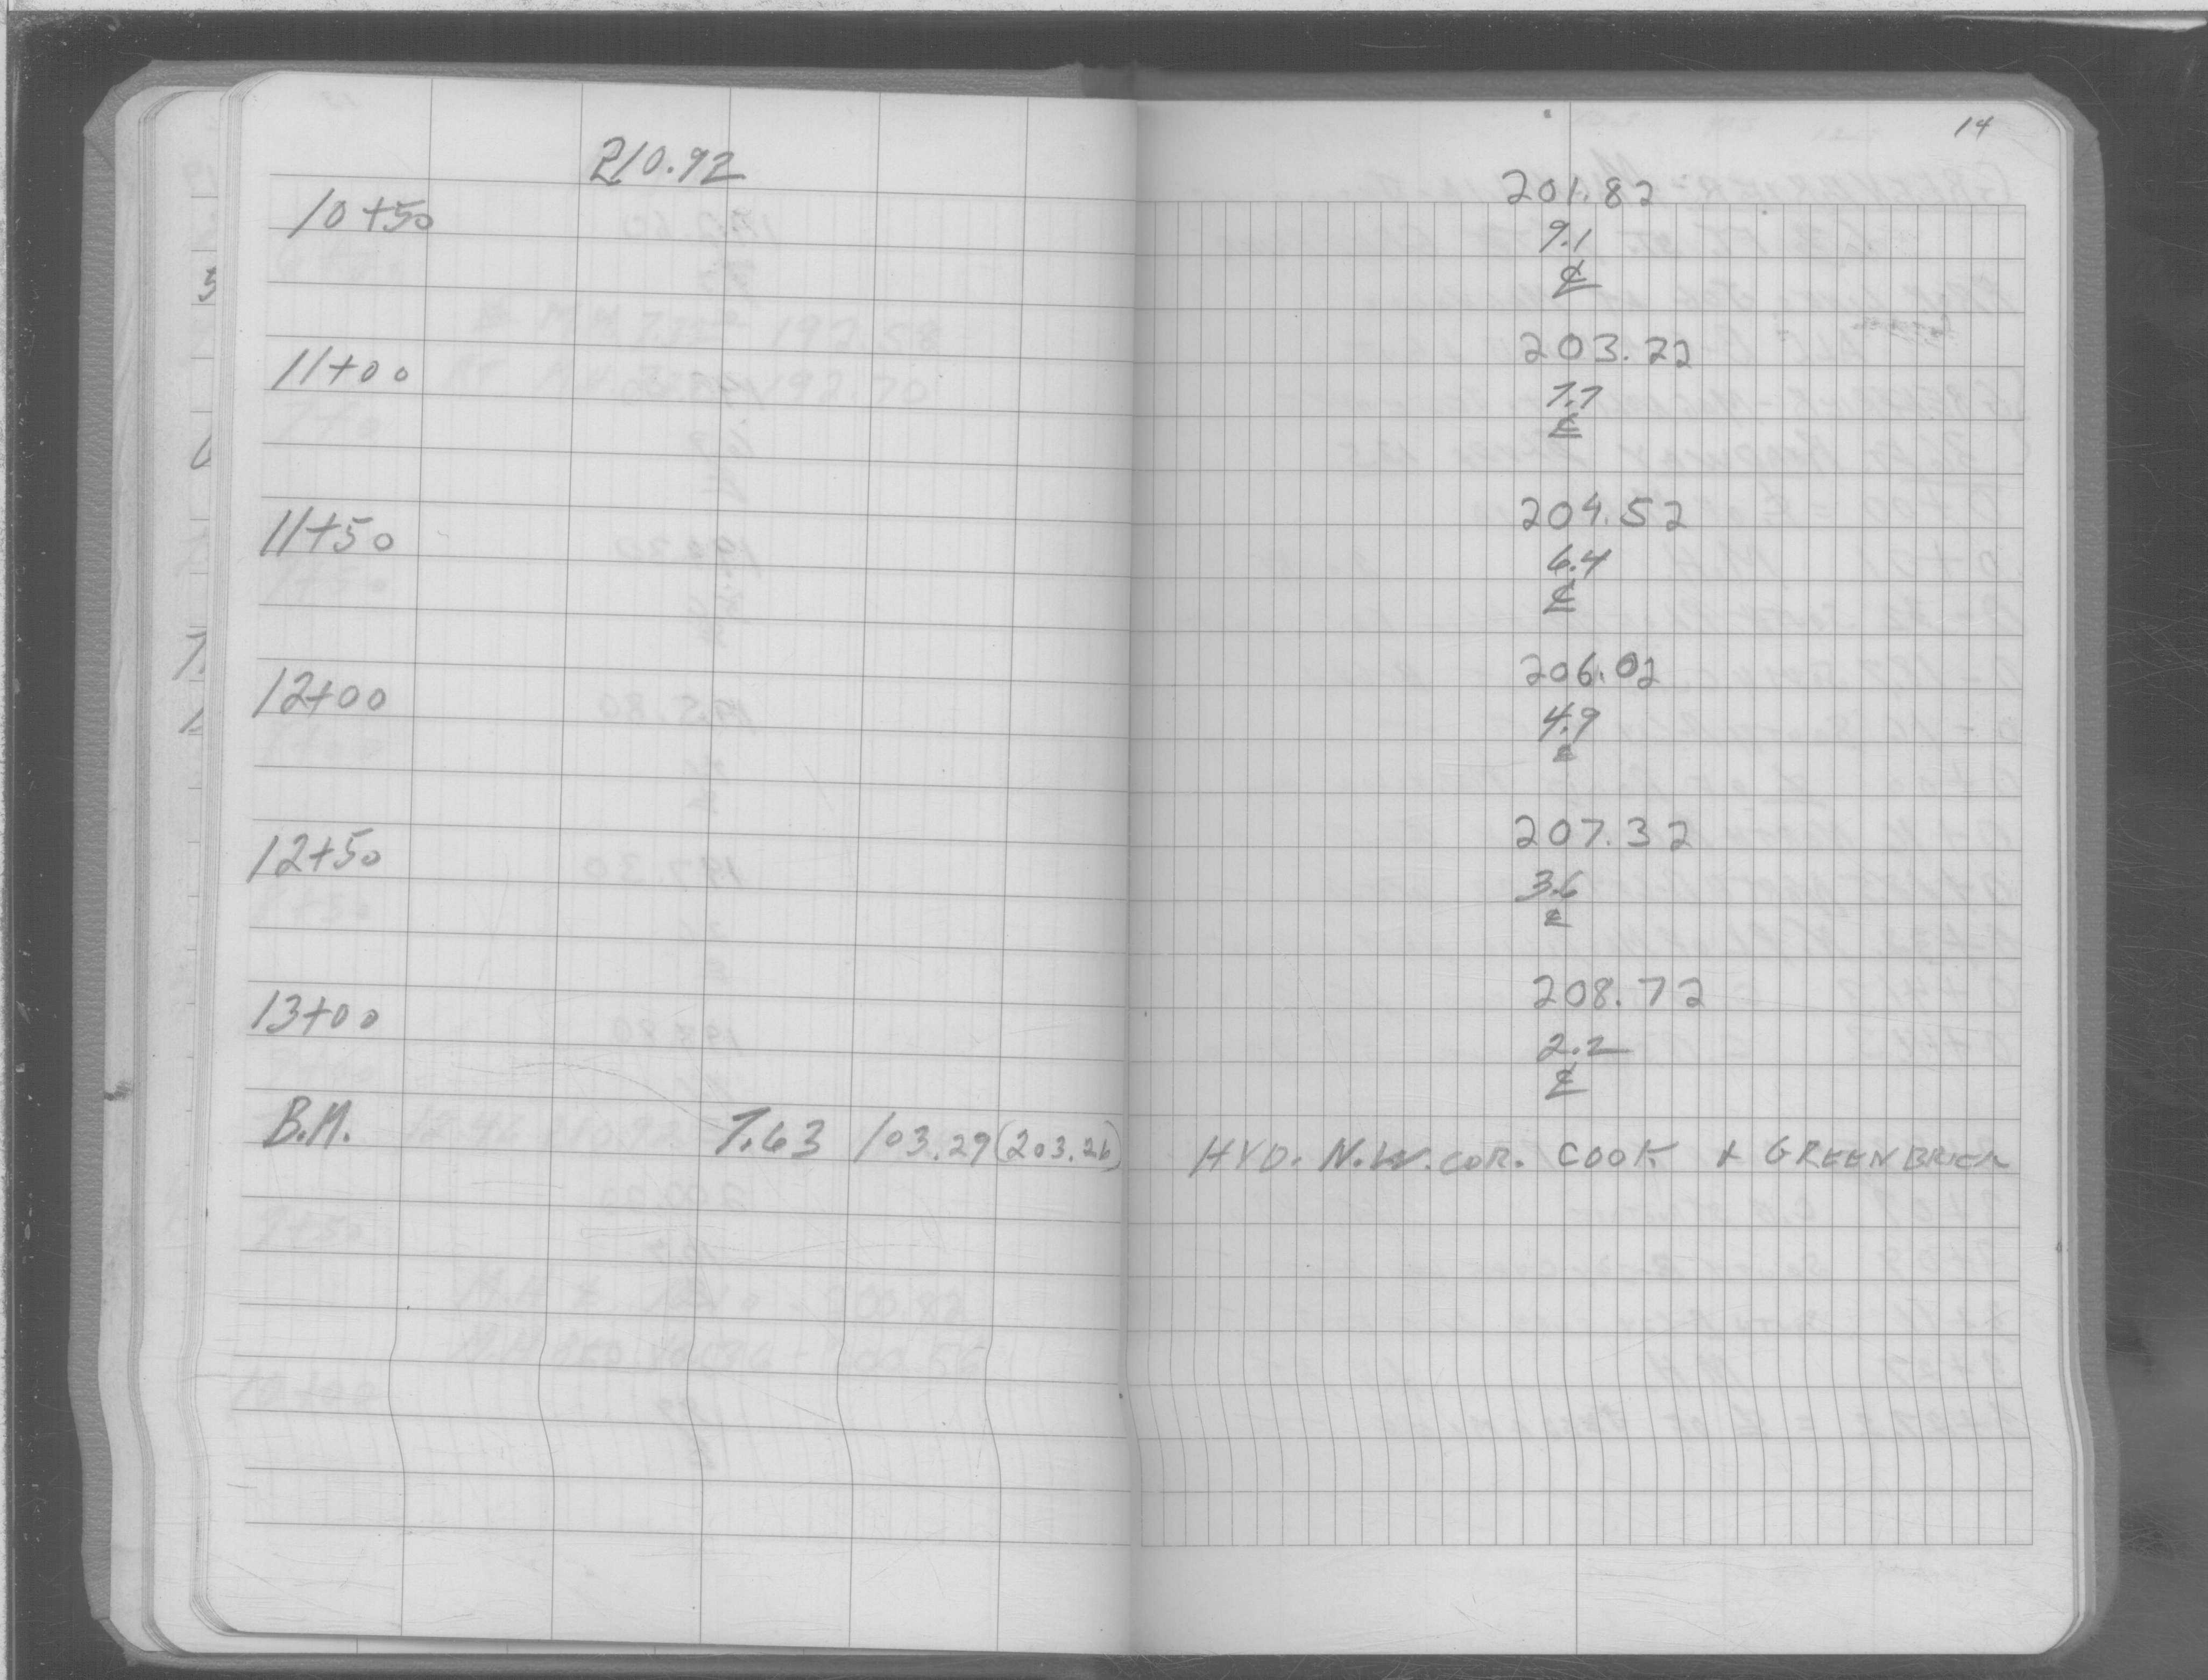 14
210.92
201.82
10+50
9.1
℄
203.22
11+00
7.7
℄
204.52
11+50
6.4
℄
206.02
12+00
4.9
℄
207.32
12+50
3.6
℄
208.72
13+00
2.2
℄
B.M. 7.63 103.29 (203.26) HYD. N.W. COR. COOK & GREENBRIER